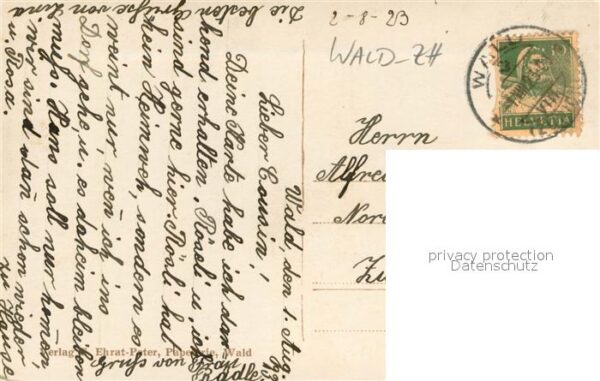 2-8-23
WALD-ZH
HELVETIA
Wald den 1. Aug.
Lieber Cousin!
Deine Karte habe ich dan
kend erhalten. Röseli u. i
sind gerne hier. Rösli hat
kein Heimweh, sondern es
meint nur, wen ich ins
Dorf gehe, u. es daheim bleiben
muss. Hans soll nur kommen
wir sind dan schon wieder,
zu Hause
Die besten Grüsse von Lina
u. Rosa.
Gruss von Frau
Herrn
Alfre
Nor
Zü
privacy protection
Datenschutz
Verlag Ehrat-Peter, Papeterie, Wald